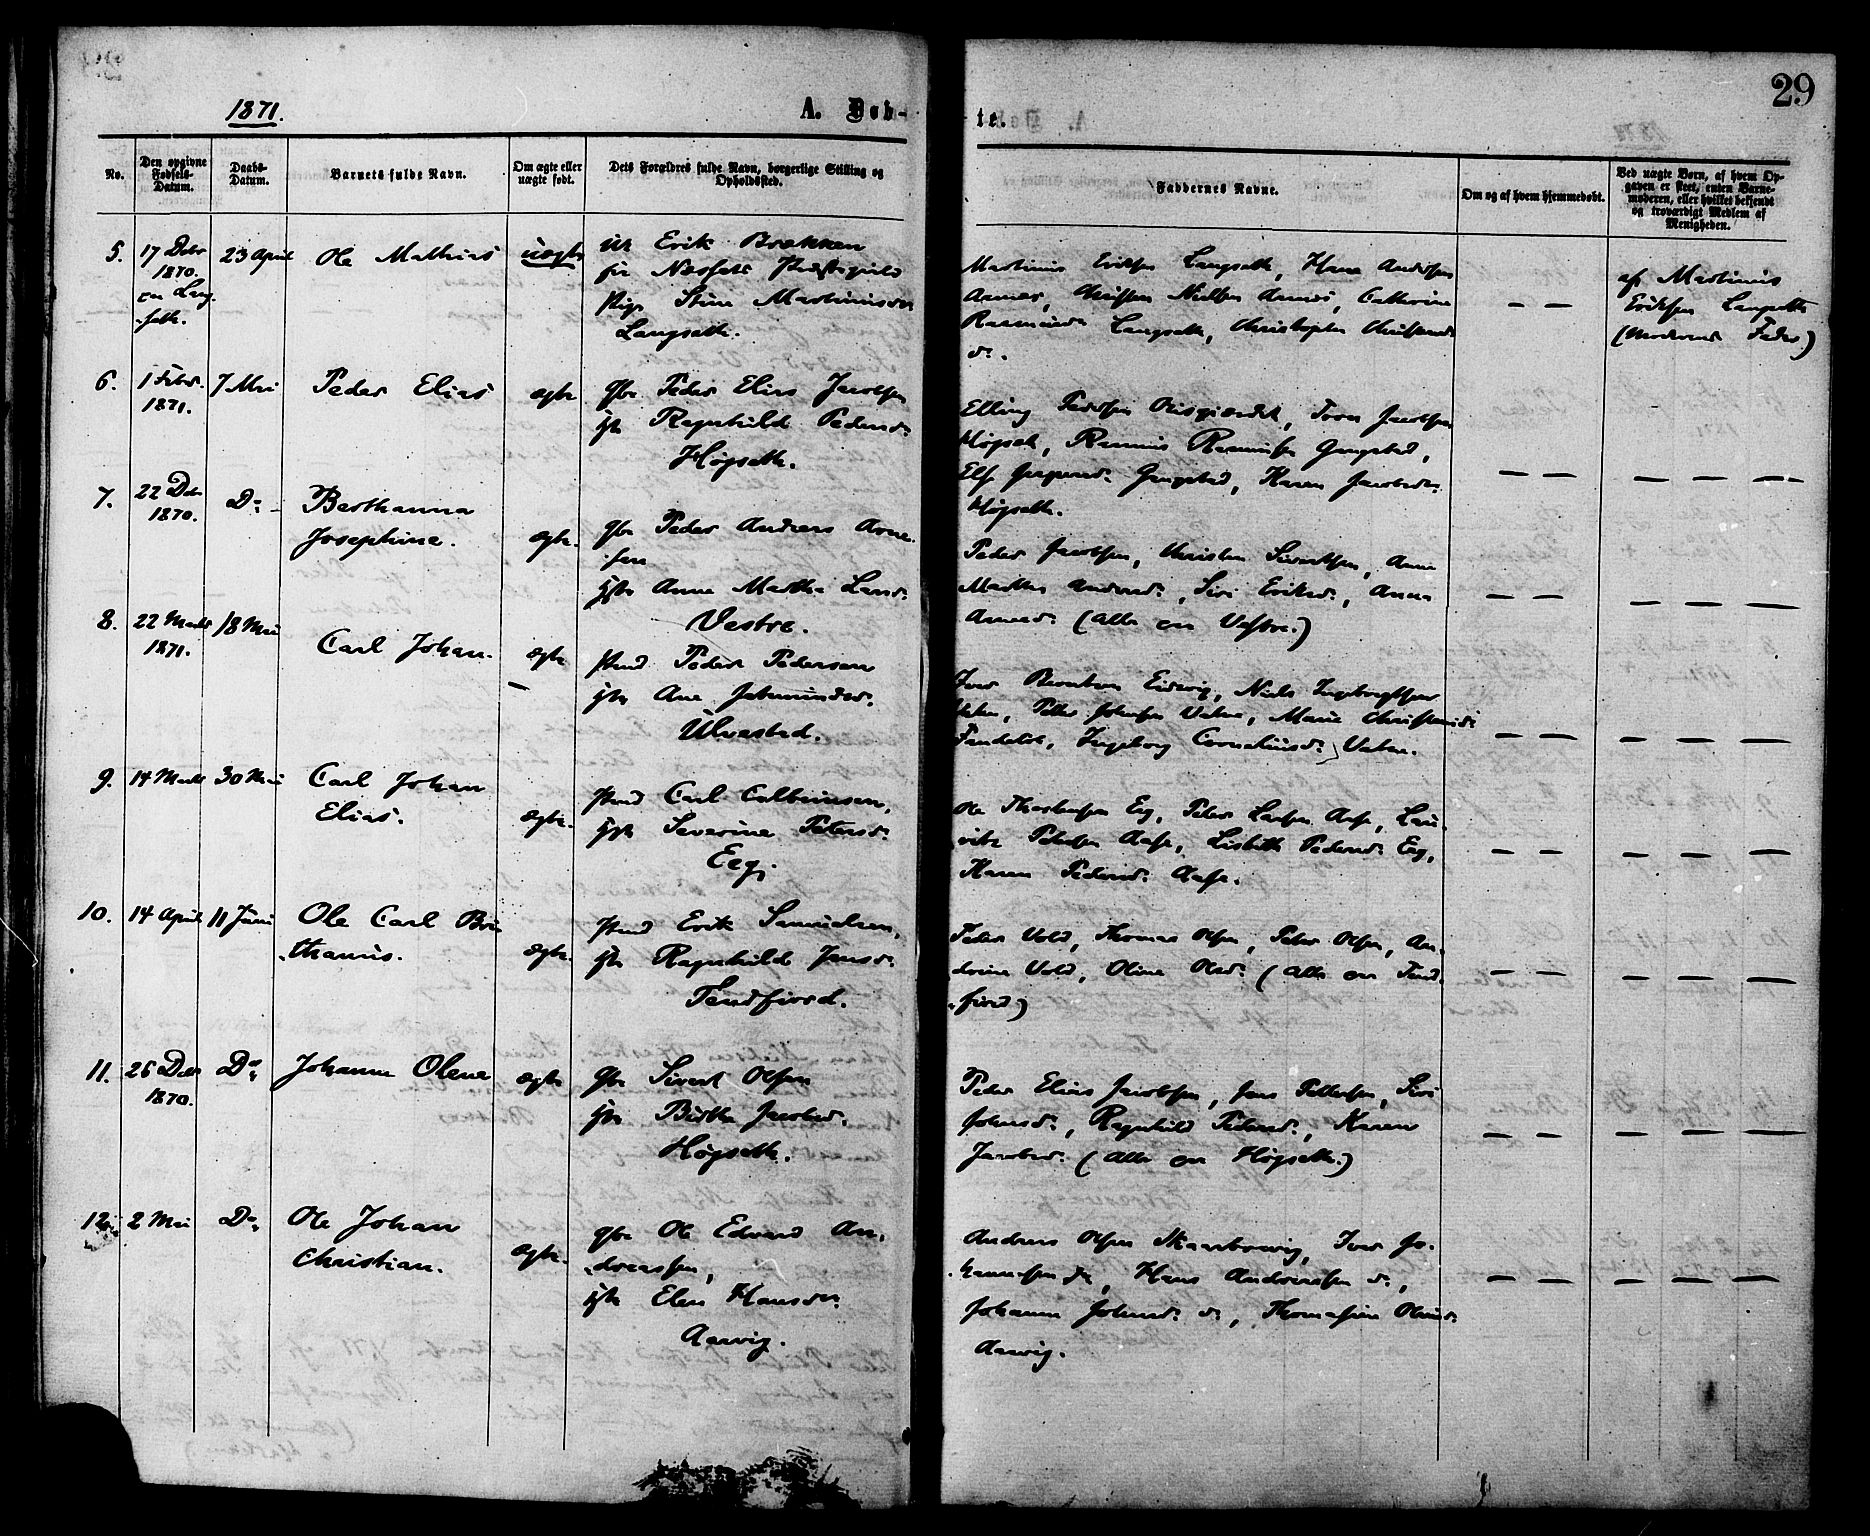 29
1871.
A. Døb-
te.
No.
Den opgivne Fødsels-Datum.
Daabs-Datum.
Barnets fulde Navn.
Om ægte eller uægte født.
Dets Forældres fulde Navn, borgerlige Stilling og Opholdssted.
Faddernes Navne.
Om og af hvem hjemmedøbt.
Ved uægte Børn, af hvem Opgaven er skeet, enten Barnemoderen, eller hvilket bekjendt og troværdigt Medlem af Menigheden.
5.
17 Decbr
1870.
23 April
Ole Mathias
uægte
Erik Brækken
Næssets Præstegield
pige Stine Martinusdr
Langseth.
Martinus Eriksen Langseth, Hans Andersen
Aarnes, Christen Nielsen Aarnes, Cathrine
Rasmusdr Langseth, Christopher
do.
— —
af Martinus
Eriksen Langseth
(Moderens Fader)
6.
1 Febr.
1871.
7 Mai
Peder Elias
ægte
Gbr Peder Elias Jacobsen
Ragnhild Pedersdr
Høgseth.
Elling Pedersen
Høgseth, Rasmus Rasmussen Gangstad,
Gangstad, Karen Jacobsdr
Høgseth.
— —
— — —
7.
22 Decbr
1870.
Do
Berthanna
Josephine.
ægte.
Gbr Peder Andreas Arne
sen
Anne Martha Larsdr
Vestre.
Peder Jacobsen, Christen Sivertsen, Anne
Martha Andersdr, Siri Eriksdr, Anne
Arnesdr (Alle on Vestre.)
— —
— — —
8.
22 Marts
1871.
18 Mai
Carl Johan.
ægte
Peder Pedersen
Ane Jetmundsdr.
Ulvestad.
Iver Berntsen Eidsvig, Niels Ingebregtsen
Vatne, Peter Johnsen Vatne, Marie
Ingeborg Corneliusdr Vatne.
— —
— — —
9.
14 Marts
30 Mai
Carl Johan
Elias.
ægte.
Carl Colbeinsen,
Severine Petersdr
Eeg.
Ole Eeg, Peder Larsen Aase, Lau-
ritz Pedersen Aase, Lisbeth Pedersdr Eeg,
Karen Pedersdr Aase.
— —
— — —
10.
14 April
11 Juni
Ole Carl Bri
thanius.
ægte.
Erik Samuelsen,
Ragnhild Jensdr
Tendfjord.
Peder Vold, Thomas Olsen, Peter Olsen, An-
drine Vold, Oline Olsdr (Alle on Tend
fjord)
— —
— — —
11.
26 Decbr
1870.
Do
Johanne Olene
ægte
Gbr Sivert Olsen
Birthe Jacobsdr.
Høgseth.
Peder Elias Jacobsen, Jens Pedersen, Siri
Johnsdr, Ragnhild Pedersdr, Karen
Jacobsdr (Alle on Høgseth.)
— —
— — —
12.
2 Mai
Do
Ole Johan
Christian.
ægte.
Gbr Ole Edvard An-
dreassen,
Elen Hansdr.
Aarvig.
Andreas Olsen Skarbøvig, Iver Jo-
hannesen do, Hans Andreassen do,
Johanne Johnsdr do, Thomasine Olsdr
Aarvig.
— —
— — —